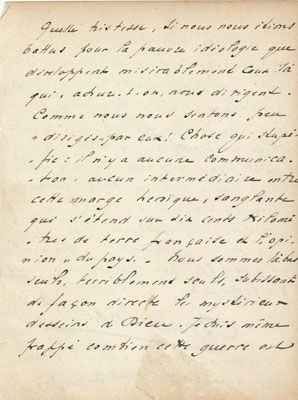 Quelle tristesse, si nous nous étions
battus pour la pauvre idéologie que
développent misérablement ceux là
qui, achur-t-on, nous dirigent.
Comme nous nous sentons peu
"dirigés" par eux! Chose qui stupé-
fie: il n'y a aucune communica-
tion, aucun intermédiaire entre
cette marge héroïque, sanglante
qui s'étend sur six cents kilomè-
tres de terre française et l'"opi-
nion" du pays. - Nous sommes là bas
seuls, terriblement seuls, subissant
de façon directe les mystérieux
desseins de Dieu. Je suis même
frappé combien cette guerre est